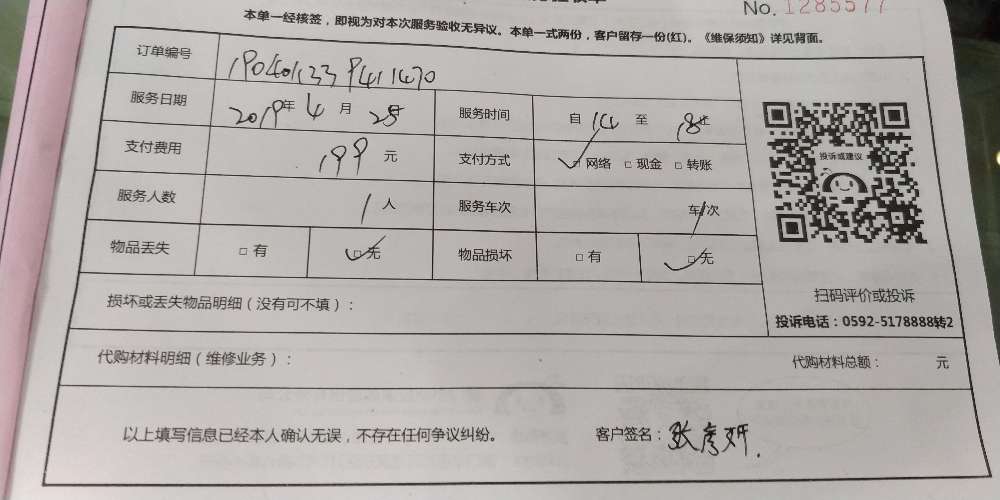 No. 1285577
本单一经核签，即视为对本次服务验收无异议。本单一式两份，客户留存一份(红)。《维保须知》详见背面。
订单编号
服务日期 2019年 4 月 25日 服务时间 自 14 至 18止
支付费用 199 元 支付方式 ☑网络 □现金 □转账
服务人数 1 人 服务车次 车/次
物品丢失 □有 ☑无 物品损坏 □有 ☑无
投诉或建议
扫码评价或投诉
投诉电话：0592-5178888转2
损坏或丢失物品明细（没有可不填）：
代购材料明细（维修业务）： 代购材料总额： 元
以上填写信息已经本人确认无误，不存在任何争议纠纷。 客户签名：张彦妍.